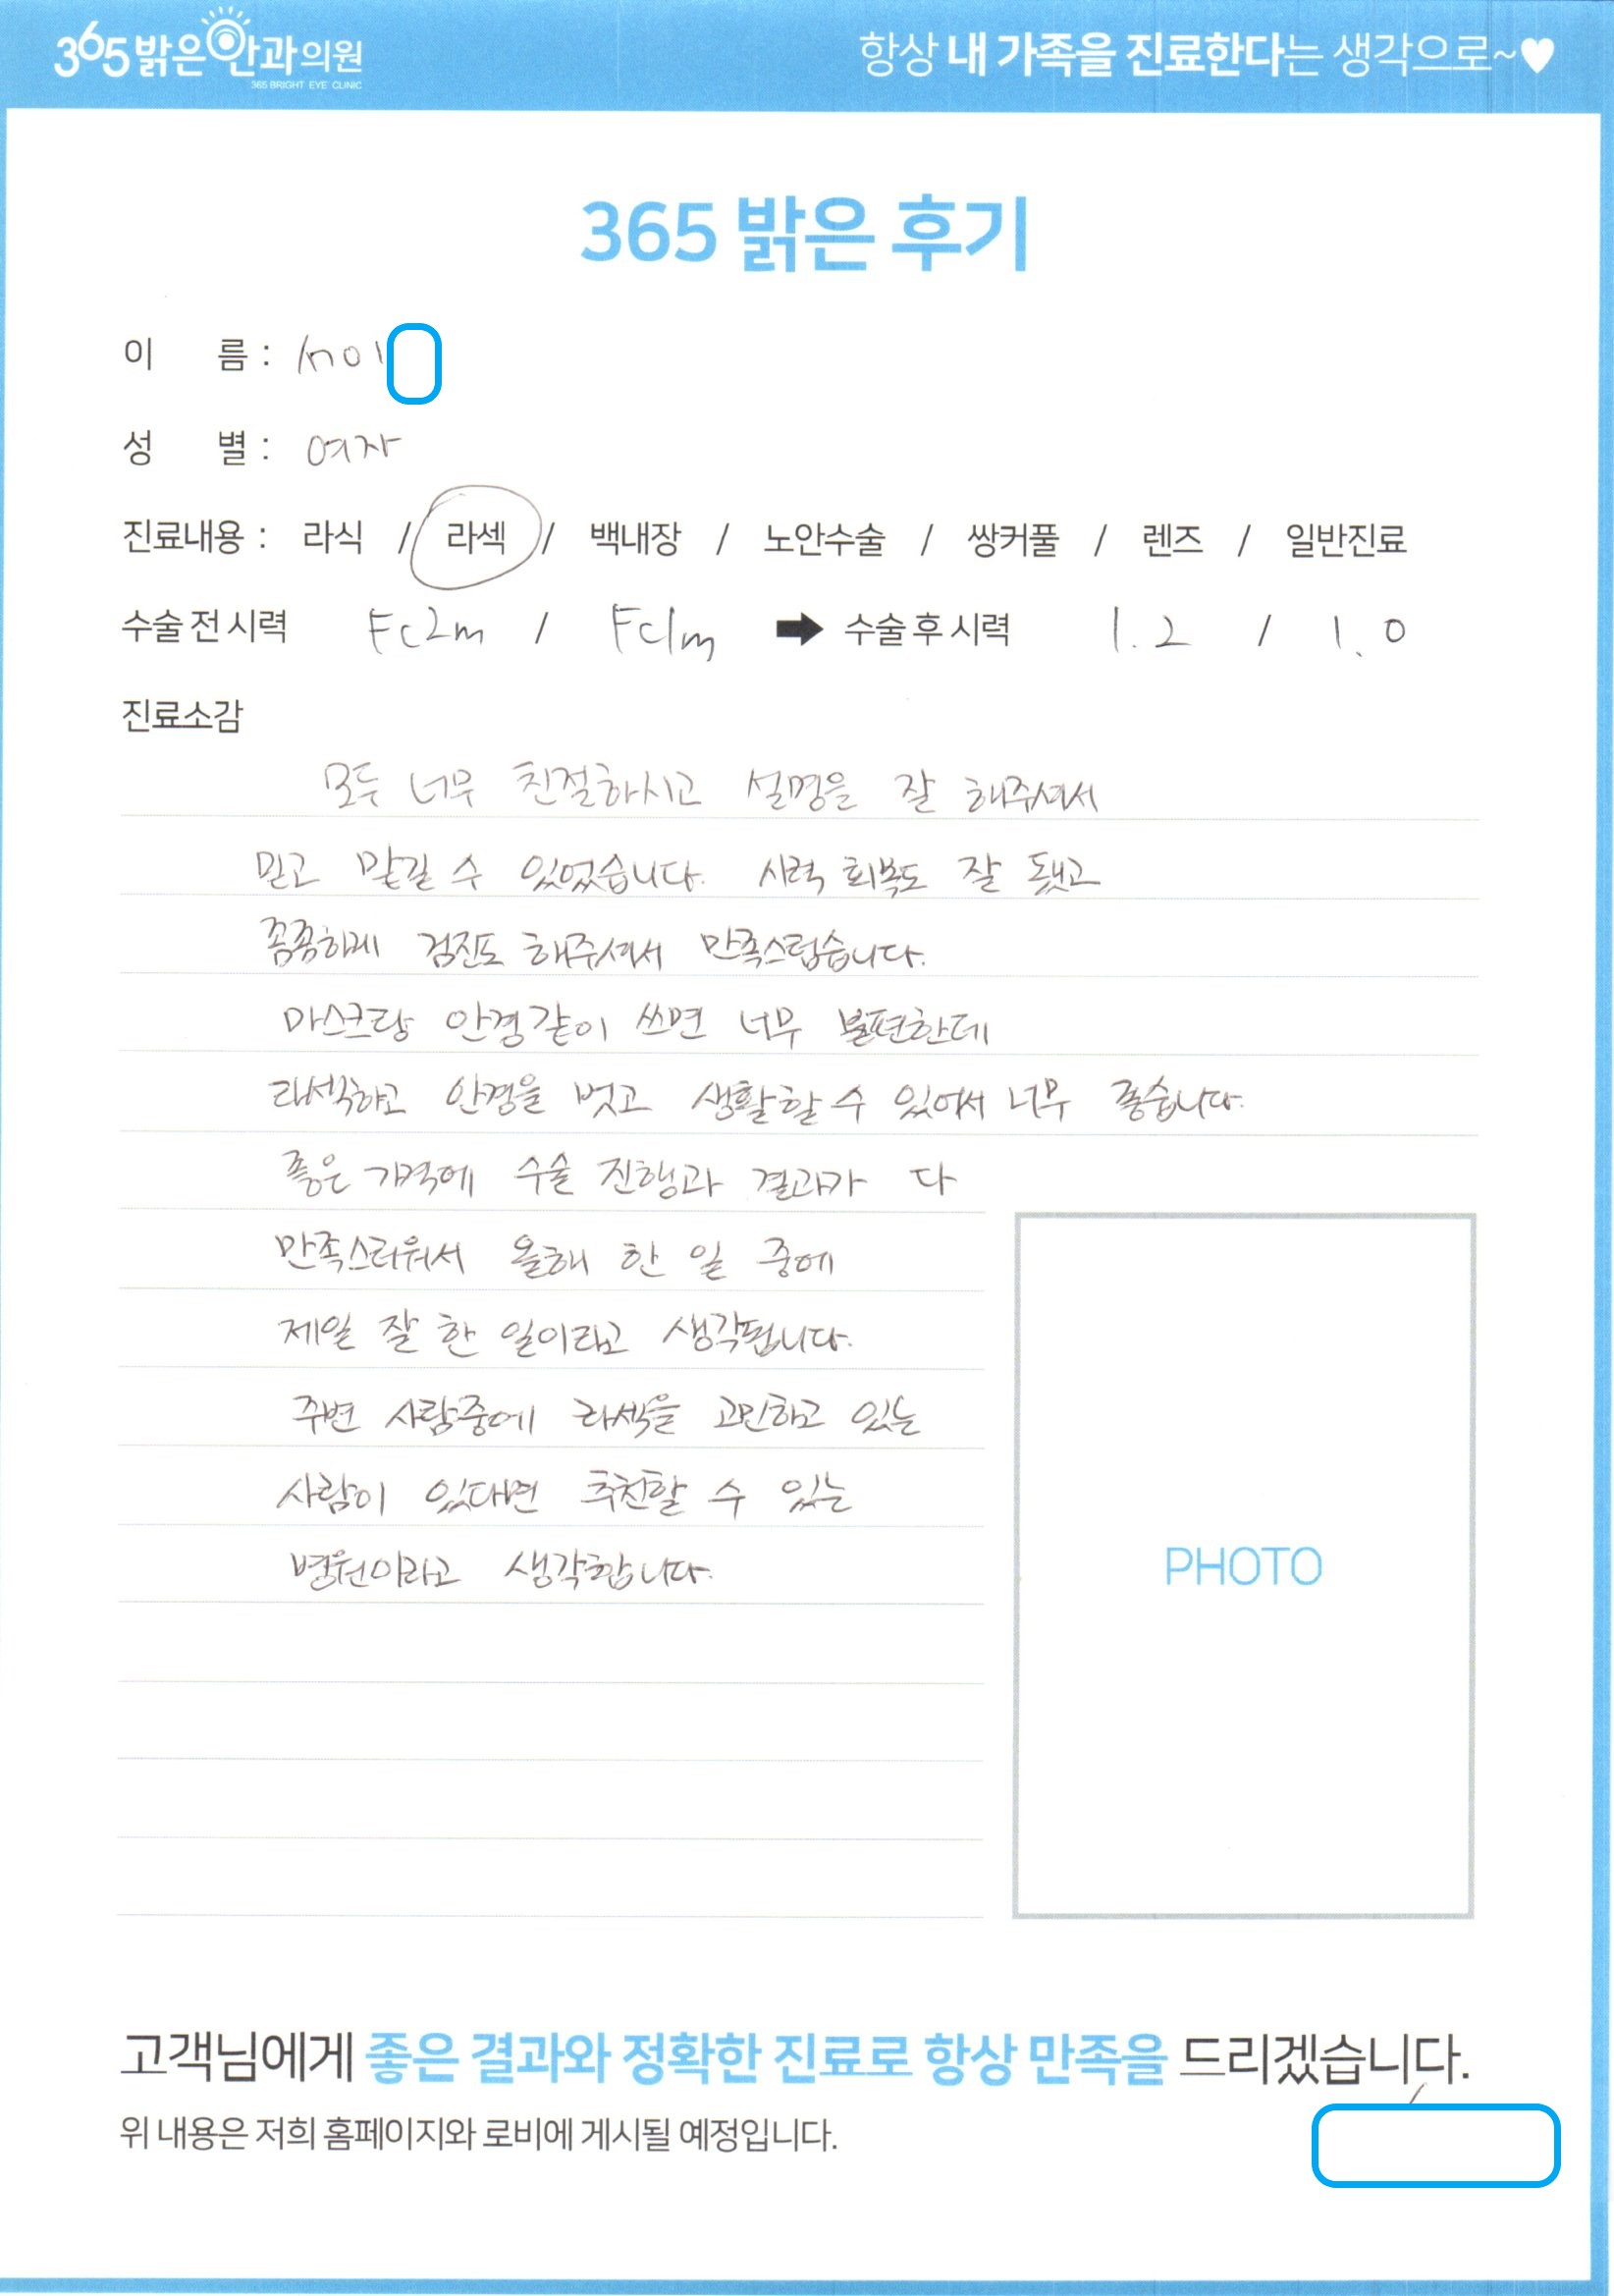 365밝은안과의원
365 BRIGHT EYE CLINIC
항상 내 가족을 진료한다는 생각으로~♥
365 밝은 후기
이 름 :
성 별 : 여자
진료내용 : 라식 / 라섹 / 백내장 / 노안수술 / 쌍커풀 / 렌즈 / 일반진료
수술 전 시력 Fc2m / Fc1m ➡ 수술 후 시력 1.2 / 1.0
진료소감
모두 너무 친절하시고 설명을 잘 해주셔서
믿고 맡길 수 있었습니다. 시력 회복도 잘 됐고
꼼꼼하게 검진도 해주셔서 만족스럽습니다.
마스크랑 안경같이 쓰면 너무 불편한데
라섹하고 안경을 벗고 생활할 수 있어서 너무 좋습니다.
좋은 가격에 수술 진행과 결과가 다
만족스러워서 올해 한 일 중에
제일 잘 한 일이라고 생각됩니다.
주변 사람중에 라섹을 고민하고 있는
사람이 있다면 추천할 수 있는
병원이라고 생각합니다.
PHOTO
고객님에게 좋은 결과와 정확한 진료로 항상 만족을 드리겠습니다.
위 내용은 저희 홈페이지와 로비에 게시될 예정입니다.